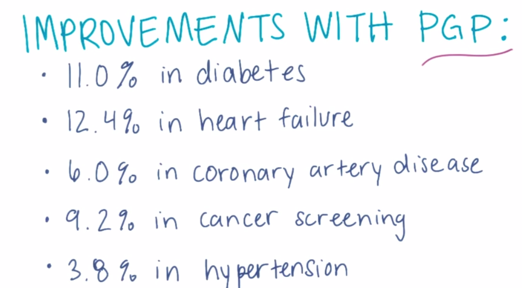 IMPROVEMENTS WITH PGP:
• 11.0% in diabetes
• 12.4% in heart failure
• 6.0% in coronary artery disease
• 9.2% in cancer screening
• 3.8% in hypertension